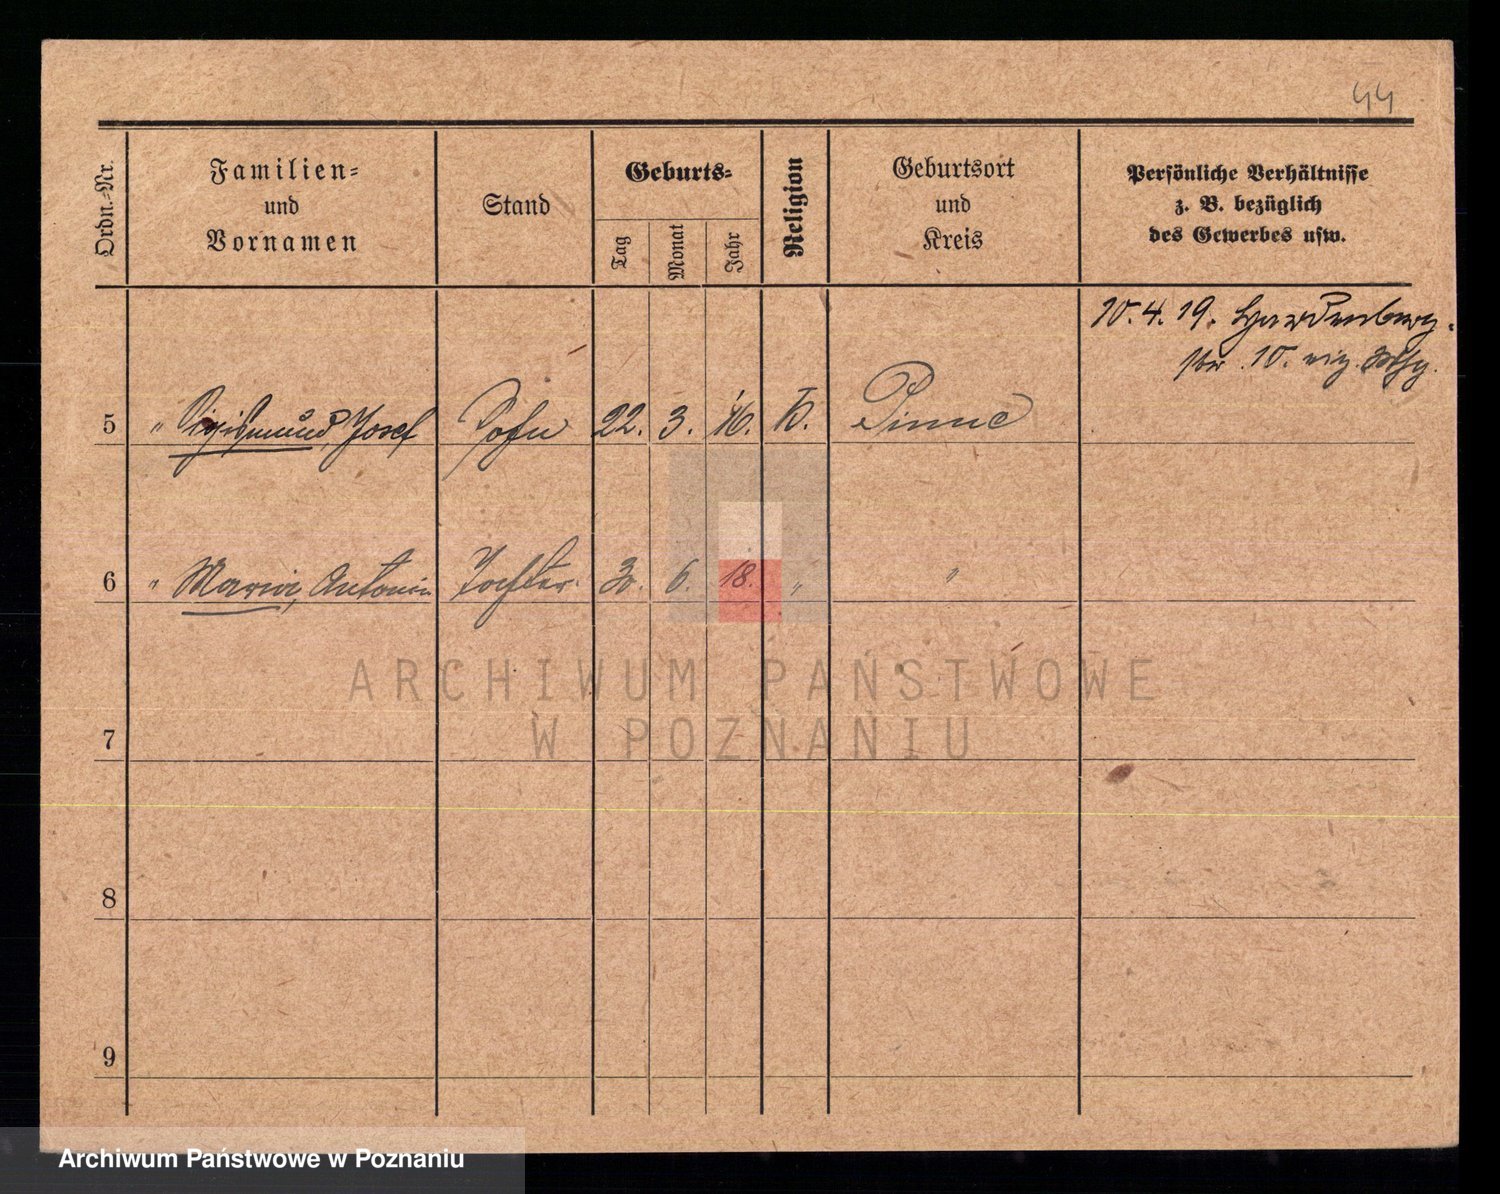 44
Ordn.-Nr.
Familien-
und
Vornamen
Stand
Geburts-
Tag
Monat
Jahr
Religion
Geburtsort
und
Kreis
Persönliche Verhältnisse
z. B. bezüglich
des Gewerbes usw.
10. 4. 19. Hardenberg
10.
5 " Sigismund Josef Sohn 22. 3. 16. K. Pinne
6 " Maria, Antonie Tochter 30. 6. 18. " "
7
8
9
ARCHIWUM PAŃSTWOWE
W POZNANIU
Archiwum Państwowe w Poznaniu